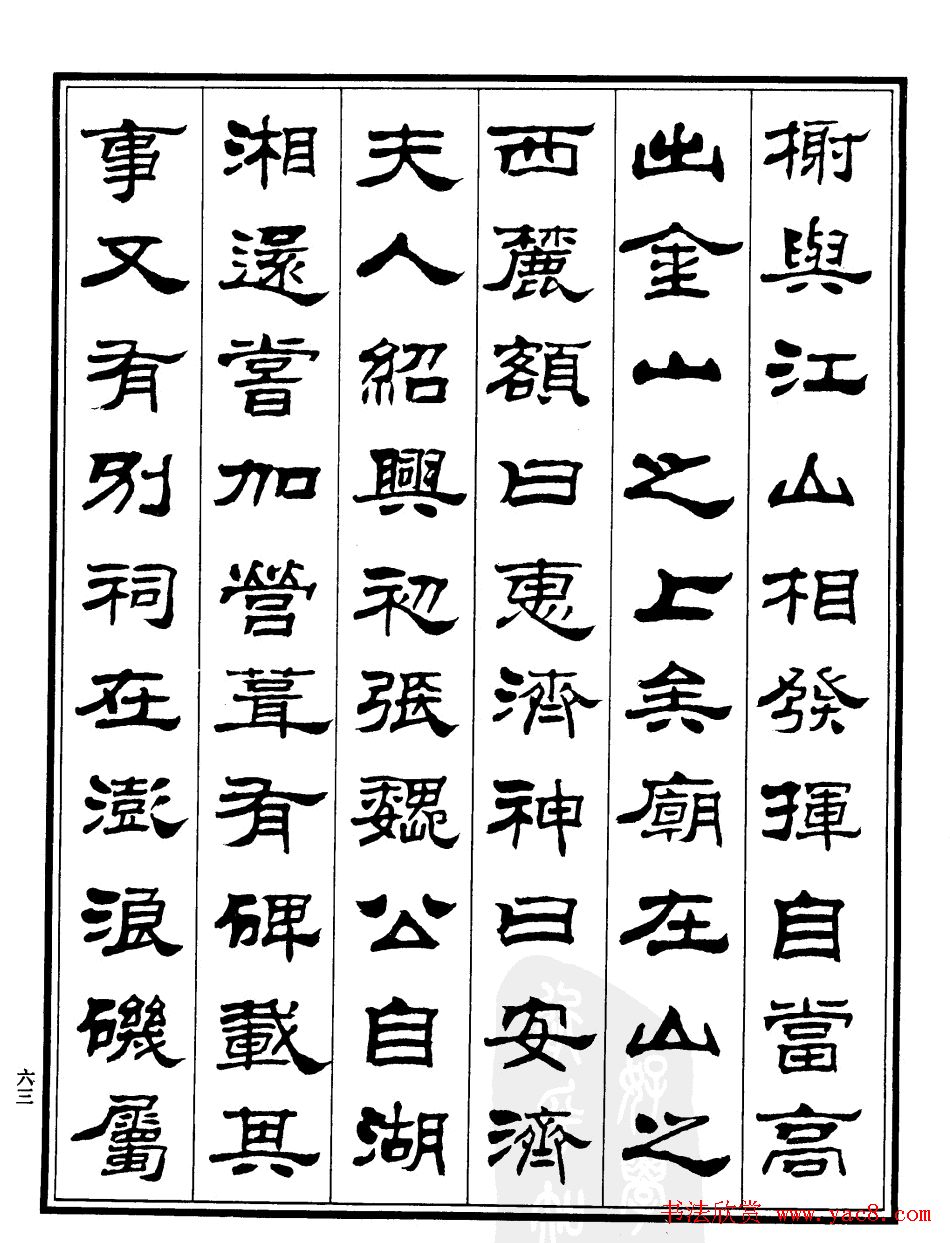 榭與江山相發揮自當高
出金山之上矣廟在山之
西麓額曰惠濟神曰安濟
夫人紹興初張魏公自湖
湘還嘗加營葺有碑載其
事又有別祠在澎浪磯屬
六三
书法欣赏 www.yac8.com